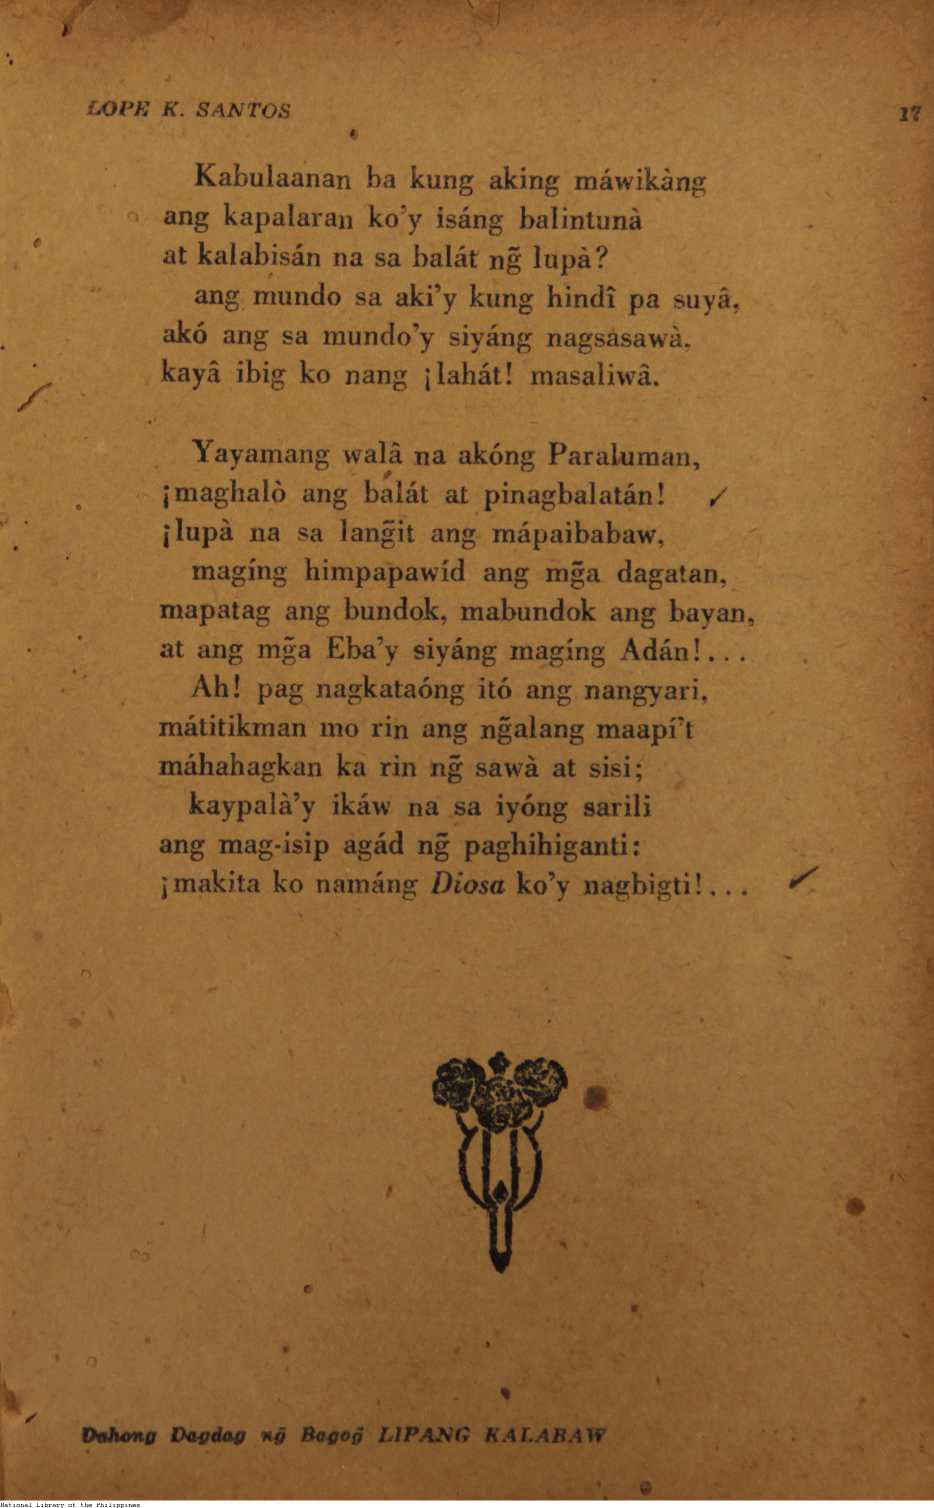 LOPE K. SANTOS 17
Kabulaanan ba kung aking máwikàng
ang kapalaran ko’y isáng balintunà
at kalabisán na sa balát ng̃ lupà?
ang mundo sa aki’y kung hindî pa suyâ,
akó ang sa mundo’y siyáng nagsasawà,
kayâ ibig ko nang ¡lahát! masaliwâ.
Yayamang walâ na akóng Paraluman,
¡maghalò ang balát at pinagbalatán!
¡lupà na sa lang̃it ang mápaibabaw,
magíng himpapawíd ang mg̃a dagatan,
mapatag ang bundok, mabundok ang bayan,
at ang mg̃a Eba’y siyáng magíng Adán!...
Ah! pag nagkataóng itó ang nangyari,
mátitikman mo rin ang ng̃alang maapí’t
máhahagkan ka rin ng̃ sawà at sisi;
kaypalà’y ikáw na sa iyóng sarili
ang mag-isip agád ng̃ paghihiganti:
¡makita ko namáng Diosa ko’y nagbigti!...
Dahong Dagdag ng̃ Bagog̃ LIPANG KALABAW
National Library of the Philippines